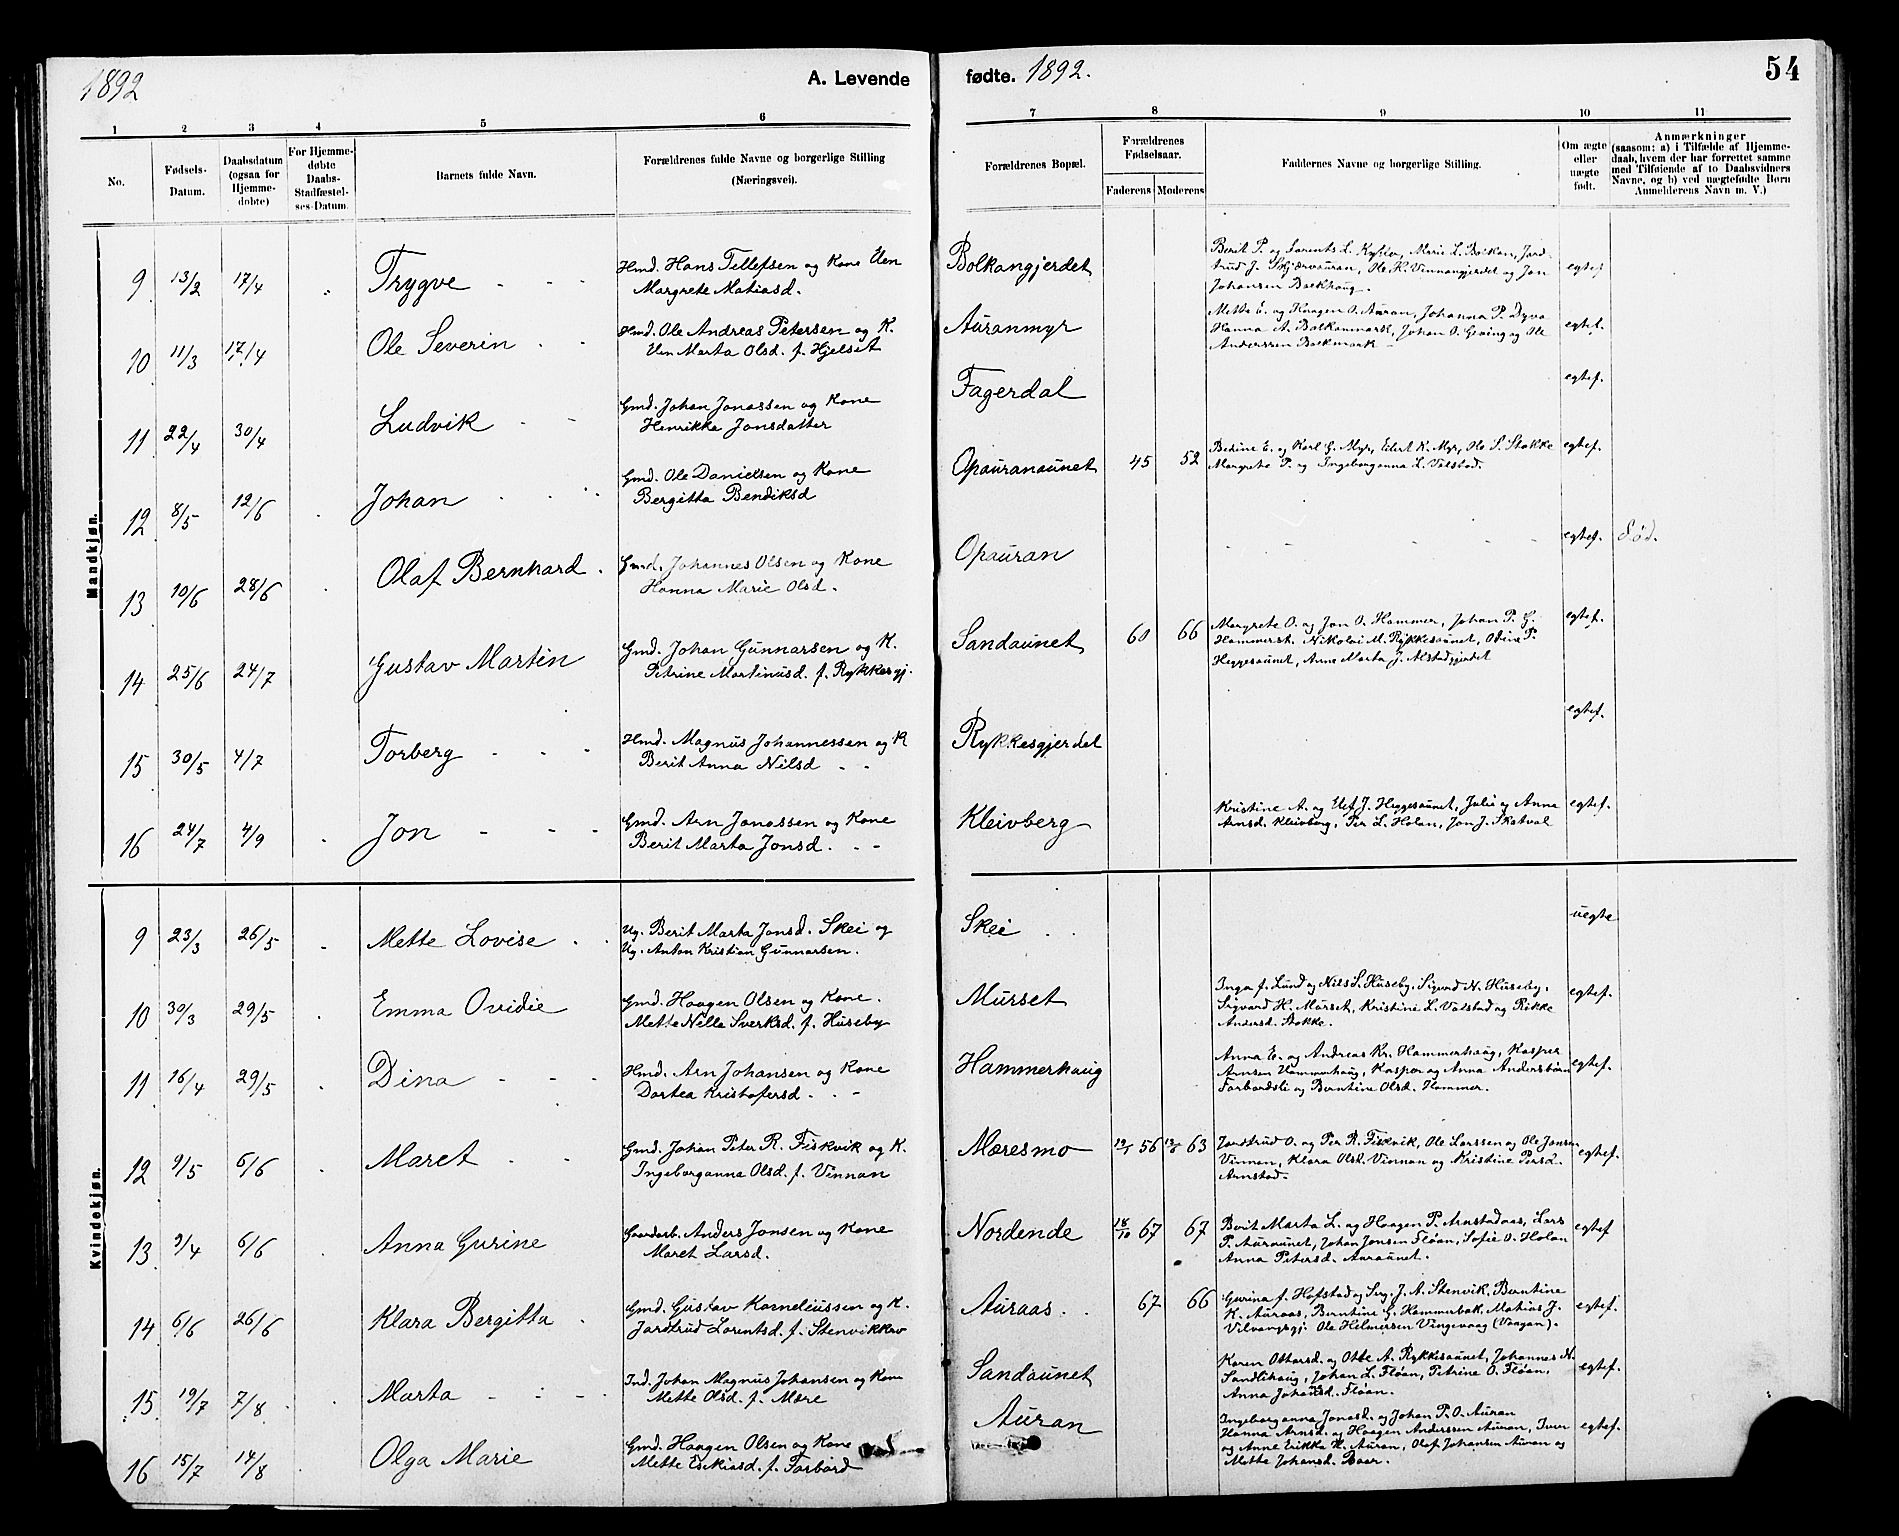 1892
A. Levende
fødte. 1892.
54
1 2 3 4 5 6 7 8 9 10 11
No.
Fødsels-Datum.
Daabsdatum (ogsaa for Hjemmedøbte)
For Hjemmedøbte Daabs-Stadfæstelses-Datum.
Barnets fulde Navn.
Forældrenes fulde Navne og borgerlige Stilling (Næringsvei).
Forældrenes Bopæl.
Forældrenes Fødselsaar.
Faderens Moderens
Faddernes Navne og borgerlige Stilling.
Om ægte eller uægte født.
Anmærkninger
(saasom: a) i Tilfælde af Hjemmedaab, hvem der har forrettet samme med Tilføiende af to Daabsvidners Navne, og b) ved uægtefødte Børn Anmelderens Navn m. V.)
Mandkjøn.
9 13/2 17/4 Trygve Hmd. Hans Tellefsen og Kone Elen
Margrete Matiasd. Bolkangjerdet egtef.
Berit P. og Lorents L. Marie L. Bolkan, Jard
trud J. Ole K. Vinnangjerdet og Jon
Johansen Baekhaug.
10 11/3 17/4 Ole Severin Hmd. Ole Andreas Petersen og K.
Elen Marta Olsd. f. Hjelset Auranmyr egtef.
Mette E. og Haagen O. Auran, Johanna P. Dyva
Hanna A. Bolkanmark, Johan O. Graing og Ole
Anderssen
11 22/4 30/4 Ludvik Gmd. Johan Jonassen og Kone
Henrikka Jonsdatter Fagerdal egtef.
12 8/5 12/6 Johan Gmd. Ole Danielsen og Kone
Bergitta Bendiksd Opauranaunet 45 52 egtef.
Berine E. og Karl G. Myr, Edert K. Myr, Ole S. Stokke
Margrete P. og Ingeborganna L. Valstad.
13 10/6 28/6 Olaf Bernhard Gmd. Johannes Olsen og Kone
Hanna Marie Olsd. Opauran egtef. død.
14 25/6 24/7 Gustav Martin Gmd. Johan Gunnarsen og K.
Petrine Martinusd. f. Rykkesgj. Sandaunet 60 66 egtef.
Margrete O. og Jon O. Hammer, Johan P. G.
Hammerst. Nikolai M. Rykkesaunet, Oline P.
Heggesaunet, Anne Marta J. Alstadgjerdet
15 30/5 4/7 Torberg Hmd. Magnus Johannessen og K
Berit Anna Nilsd Rykkesgjerdet egtef.
16 24/7 4/9 Jon Gmd. Arn Jonassen og Kone
Berit Marta Jonsd. Kleivberg egtef.
Kristine A. og Elef J. Heggesaunet, Julie og Anna
Arnsd. Kleivberg, Per L. Holan, Jon J. Skatval
Kvindekjøn.
9 23/3 26/5 Mette Lovise Ug. Berit Marta Jonsd. Skei og
Ug. Anton Kristian Gunnarsen. Skei uegte
10 30/3 29/5 Emma Ovidie Gmd. Haagen Olsen og Kone.
Mette Nella Sverksd. f. Huseby Murset egtef.
Inga f. Lund og Nils S. Huseby. Sigvard N. Huseby.
Sigvard H. Murset, Kristine L. Valstad og Rikke
Andersd. Stokke.
11 16/4 29/5 Dina Hmd. Arn Johansen og Kone
Dortea Kristofersd. Hammerhaug egtef.
Anna E. og Andreas Kr. Hammerhaug, Kasper
Arnsen Hammerhaug, Kasper og Anna Andersbørn
Forbordsli og Berntine Olsd. Hammer.
12 9/5 6/6 Maret Gmd. Johan Peter R. Fiskvik og K.
Ingeborganna Olsd. f. Vinnan Mæresmo 56 63 egtef.
Jardtrud O. og Per R. Fiskvik, Ole Larssen og Ole Jonsen
Vinnan, Klara Olsd. Vinnan og Kristine Persd.
Arnstad.
13 9/4 6/6 Anna Gurine Gaardarb. Anders Jonsen og Kone
Maret Larsd. Nordende 18/10 67 67 egtef
Berit Marta L. og Haagen P. Arnstadaas, Lars
P. Auraunet, Johan Jonsen Fløan, Sofie O. Holan
Anna Petersd. Auraunet.
14 6/6 26/6 Klara Bergitta Gmd. Gustav Korneliussen og K.
Jardtrud Lorentsd. f. Stenvikkav Auraas 67 66 egtef.
Gurina f. Hofstad og Serg. J. A. Stenvik, Berntine
K. Auraas, Berntine G. Hammerbak, Matius J.
Vilvangsgj. Ole Helmersen Vingevaag (Vaagan).
15 19/7 7/8 Marta Ind. Johan Magnus Johansen og Kone
Mette Olsd. f. Mære Sandaunet egtef.
Karen Ottarsd. og Otte A. Rykkesaunet, Johannes N.
Sandlihaug, Johan L. Fløan, Petrine O. Fløan,
Anna Johansd. Fløan.
16 15/7 14/8 Olga Marie Gmd. Haagen Olsen og Kone
Mette Esekiasd. f. Forbord Auran egtef.
Ingeborganna Jonasd. og Johan P. O. Auran
Hanna Arnsd. og Haagen Anderssen Auran, Iver
og Anne Erikka H. Auran, Olaf Johansen Auran og
Mette Johansd. Baar.